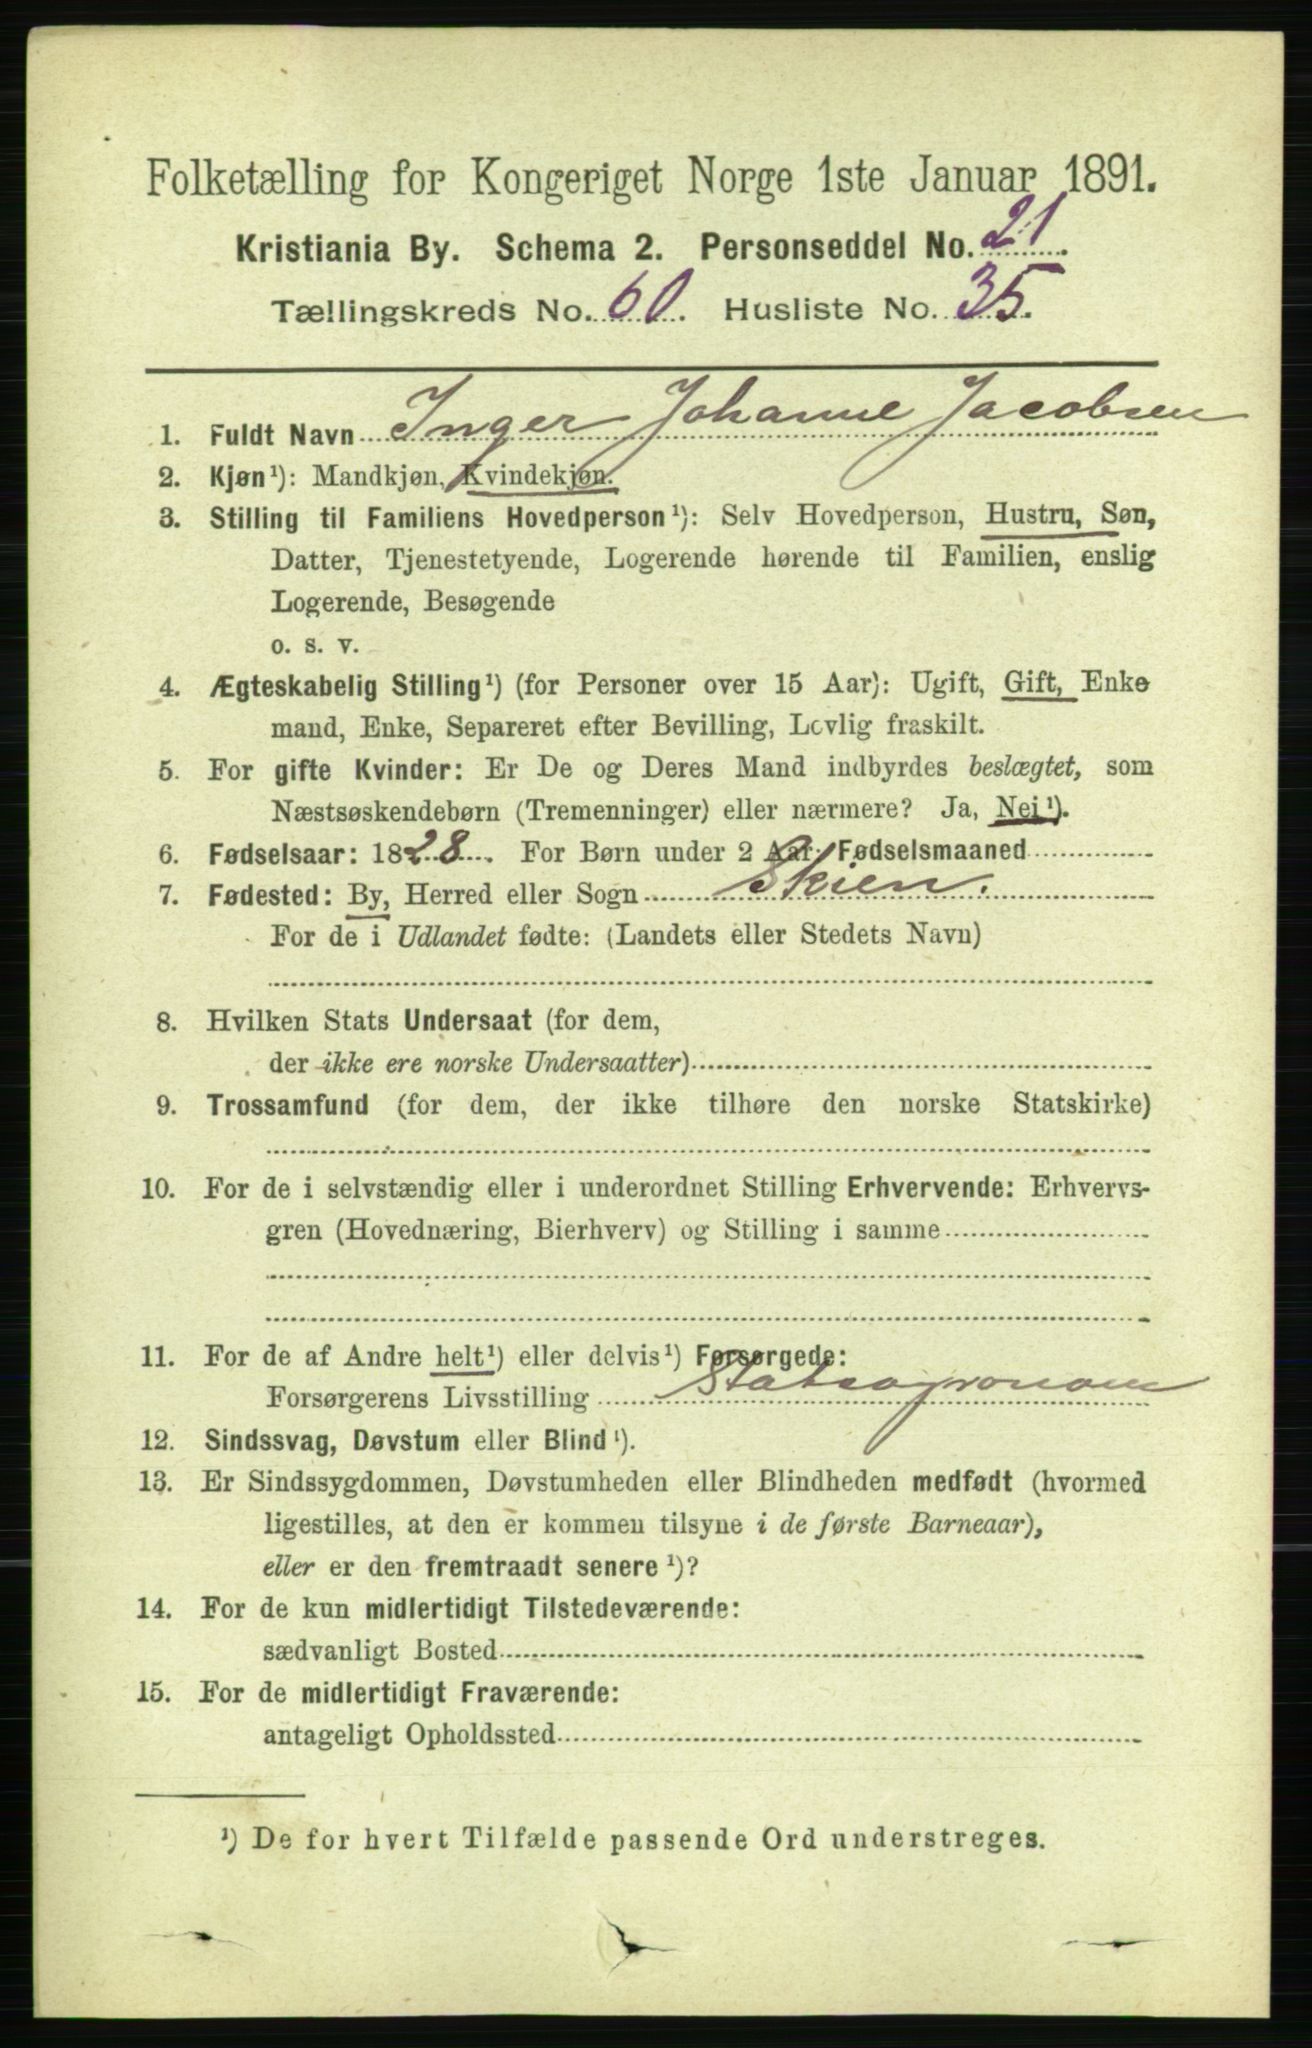 Folketælling for Kongeriget Norge 1ste Januar 1891.
Kristiania By. Schema 2. Personseddel No. 21.
Tællingskreds No. 60. Husliste No. 35.
1. Fuldt Navn Inger Johanne Jacobsen
2. Kjøn¹): Mandkjøn, Kvindekjøn.
3. Stilling til Familiens Hovedperson¹): Selv Hovedperson, Hustru, Søn,
Datter, Tjenestetyende, Logerende hørende til Familien, enslig
Logerende, Besøgende
o. s. v.
4. Ægteskabelig Stilling¹) (for Personer over 15 Aar): Ugift, Gift, Enke
mand, Enke, Separeret efter Bevilling, Lovlig fraskilt.
5. For gifte Kvinder: Er De og Deres Mand indbyrdes beslægtet, som
Næstsøskendebørn (Tremenninger) eller nærmere? Ja, Nei¹).
6. Fødselsaar: 1828. For Børn under 2 Aar: Fødselsmaaned
7. Fødested: By, Herred eller Sogn Skien.
For de i Udlandet fødte: (Landets eller Stedets Navn)
8. Hvilken Stats Undersaat (for dem,
der ikke ere norske Undersaatter)
9. Trossamfund (for dem, der ikke tilhøre den norske Statskirke)
10. For de i selvstændig eller i underordnet Stilling Erhvervende: Erhvervs-
gren (Hovednæring, Bierhverv) og Stilling i samme
11. For de af Andre helt¹) eller delvis¹) Forsørgede:
Forsørgerens Livsstilling Statsagronom
12. Sindssvag, Døvstum eller Blind¹).
13. Er Sindssygdommen, Døvstumheden eller Blindheden medfødt (hvormed
ligestilles, at den er kommen tilsyne i de første Barneaar),
eller er den fremtraadt senere¹)?
14. For de kun midlertidigt Tilstedeværende:
sædvanligt Bosted
15. For de midlertidigt Fraværende:
antageligt Opholdssted
¹) De for hvert Tilfælde passende Ord understreges.